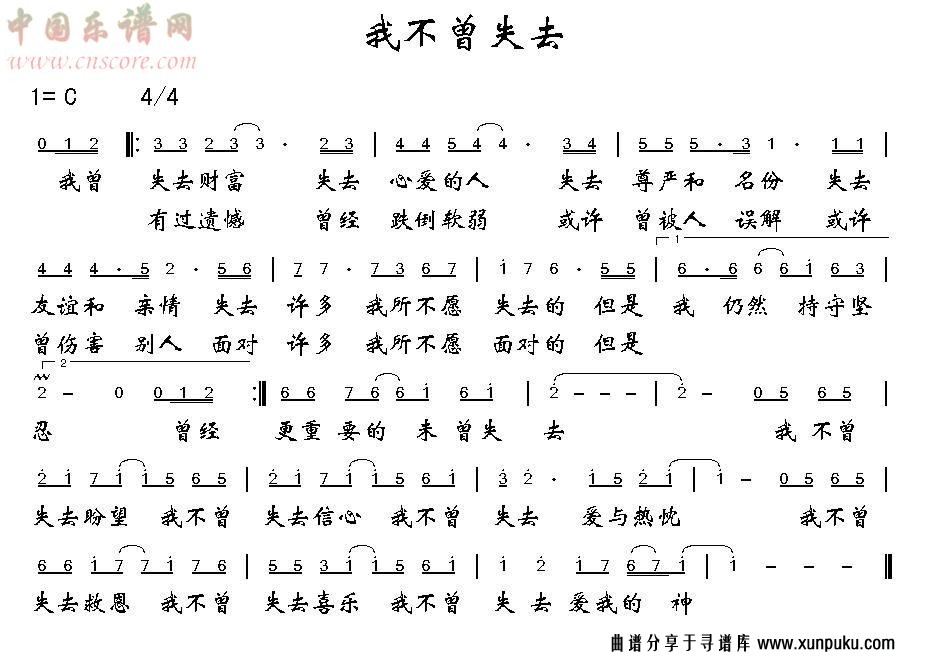 中国乐谱网
www.cnscore.com
我不曾失去
1= C 4/4
0 1 2 3 3 2 3 3 · 2 3 4 4 5 4 4 · 3 4 5 5 5 · 3 1 · 1 1
我曾 失去财富 失去 心爱的人 失去 尊严和 名份 失去
有过遗憾 曾经 跌倒软弱 或许 曾被人 误解 或许
1
4 4 4 · 5 2 · 5 6 7 7 · 7 3 6 7 1 7 6 · 5 5 6 · 6 6 6 1 6 3
友谊和 亲情 失去 许多 我所不愿 失去的 但是 我 仍然 持守坚
曾伤害 别人 面对 许多 我所不愿 面对的 但是
2
2 – 0 0 1 2 6 6 7 6 6 1 6 1 2 – – – 2 – 0 5 6 5
忍 曾经 更重 要的 未 曾失 去 我 不曾
2 1 7 1 1 5 6 5 2 1 7 1 1 5 6 5 3 2 · 1 5 2 1 1 – 0 5 6 5
失去盼望 我不曾 失去信心 我不曾 失去 爱与热忱 我不曾
6 6 1 7 7 1 7 6 5 5 3 1 1 1 7 6 1 2 1 7 1 6 7 1 1 –
失去救恩 我不曾 失去喜乐 我不曾 失去 爱我的 神
曲谱分享于寻谱库 www.xunpuku.com